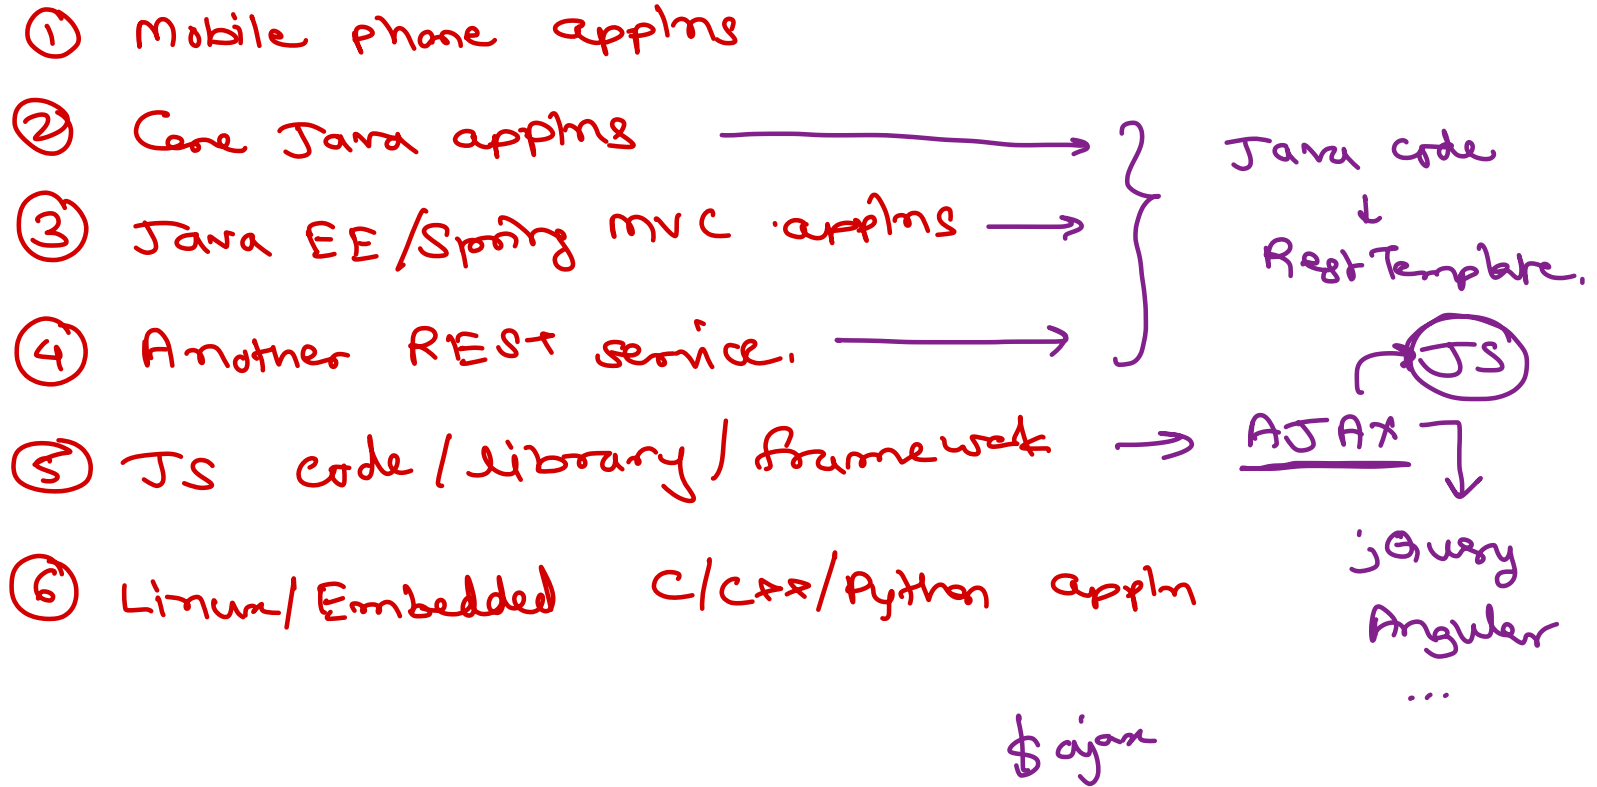 ① Mobile phone applns
② Core Java applns
③ Java EE/Spring MVC applns
④ Another REST service.
⑤ JS code/library/framework
⑥ Linux/Embedded C/C++/Python appln
Java code
↓
RestTemplate.
JS
AJAX
jQuery
Angular
...
$ ajax